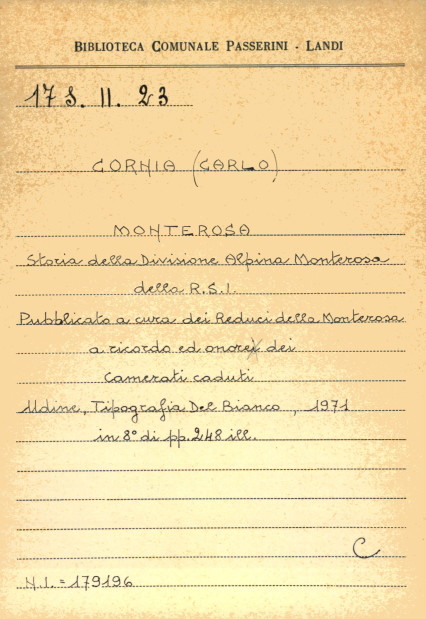 BIBLIOTECA COMUNALE PASSERINI - LANDI
17 S. II. 23
CORNIA (CARLO)
MONTEROSA
Storia della Divisione Alpina Monterosa
della R.S.I.
Pubblicato a cura dei Reduci della Monterosa
a ricordo ed onore dei
Camerati caduti
Udine, Tipografia Del Bianco, 1971
in 8° di pp. 248 ill.
C
N.I. = 179196